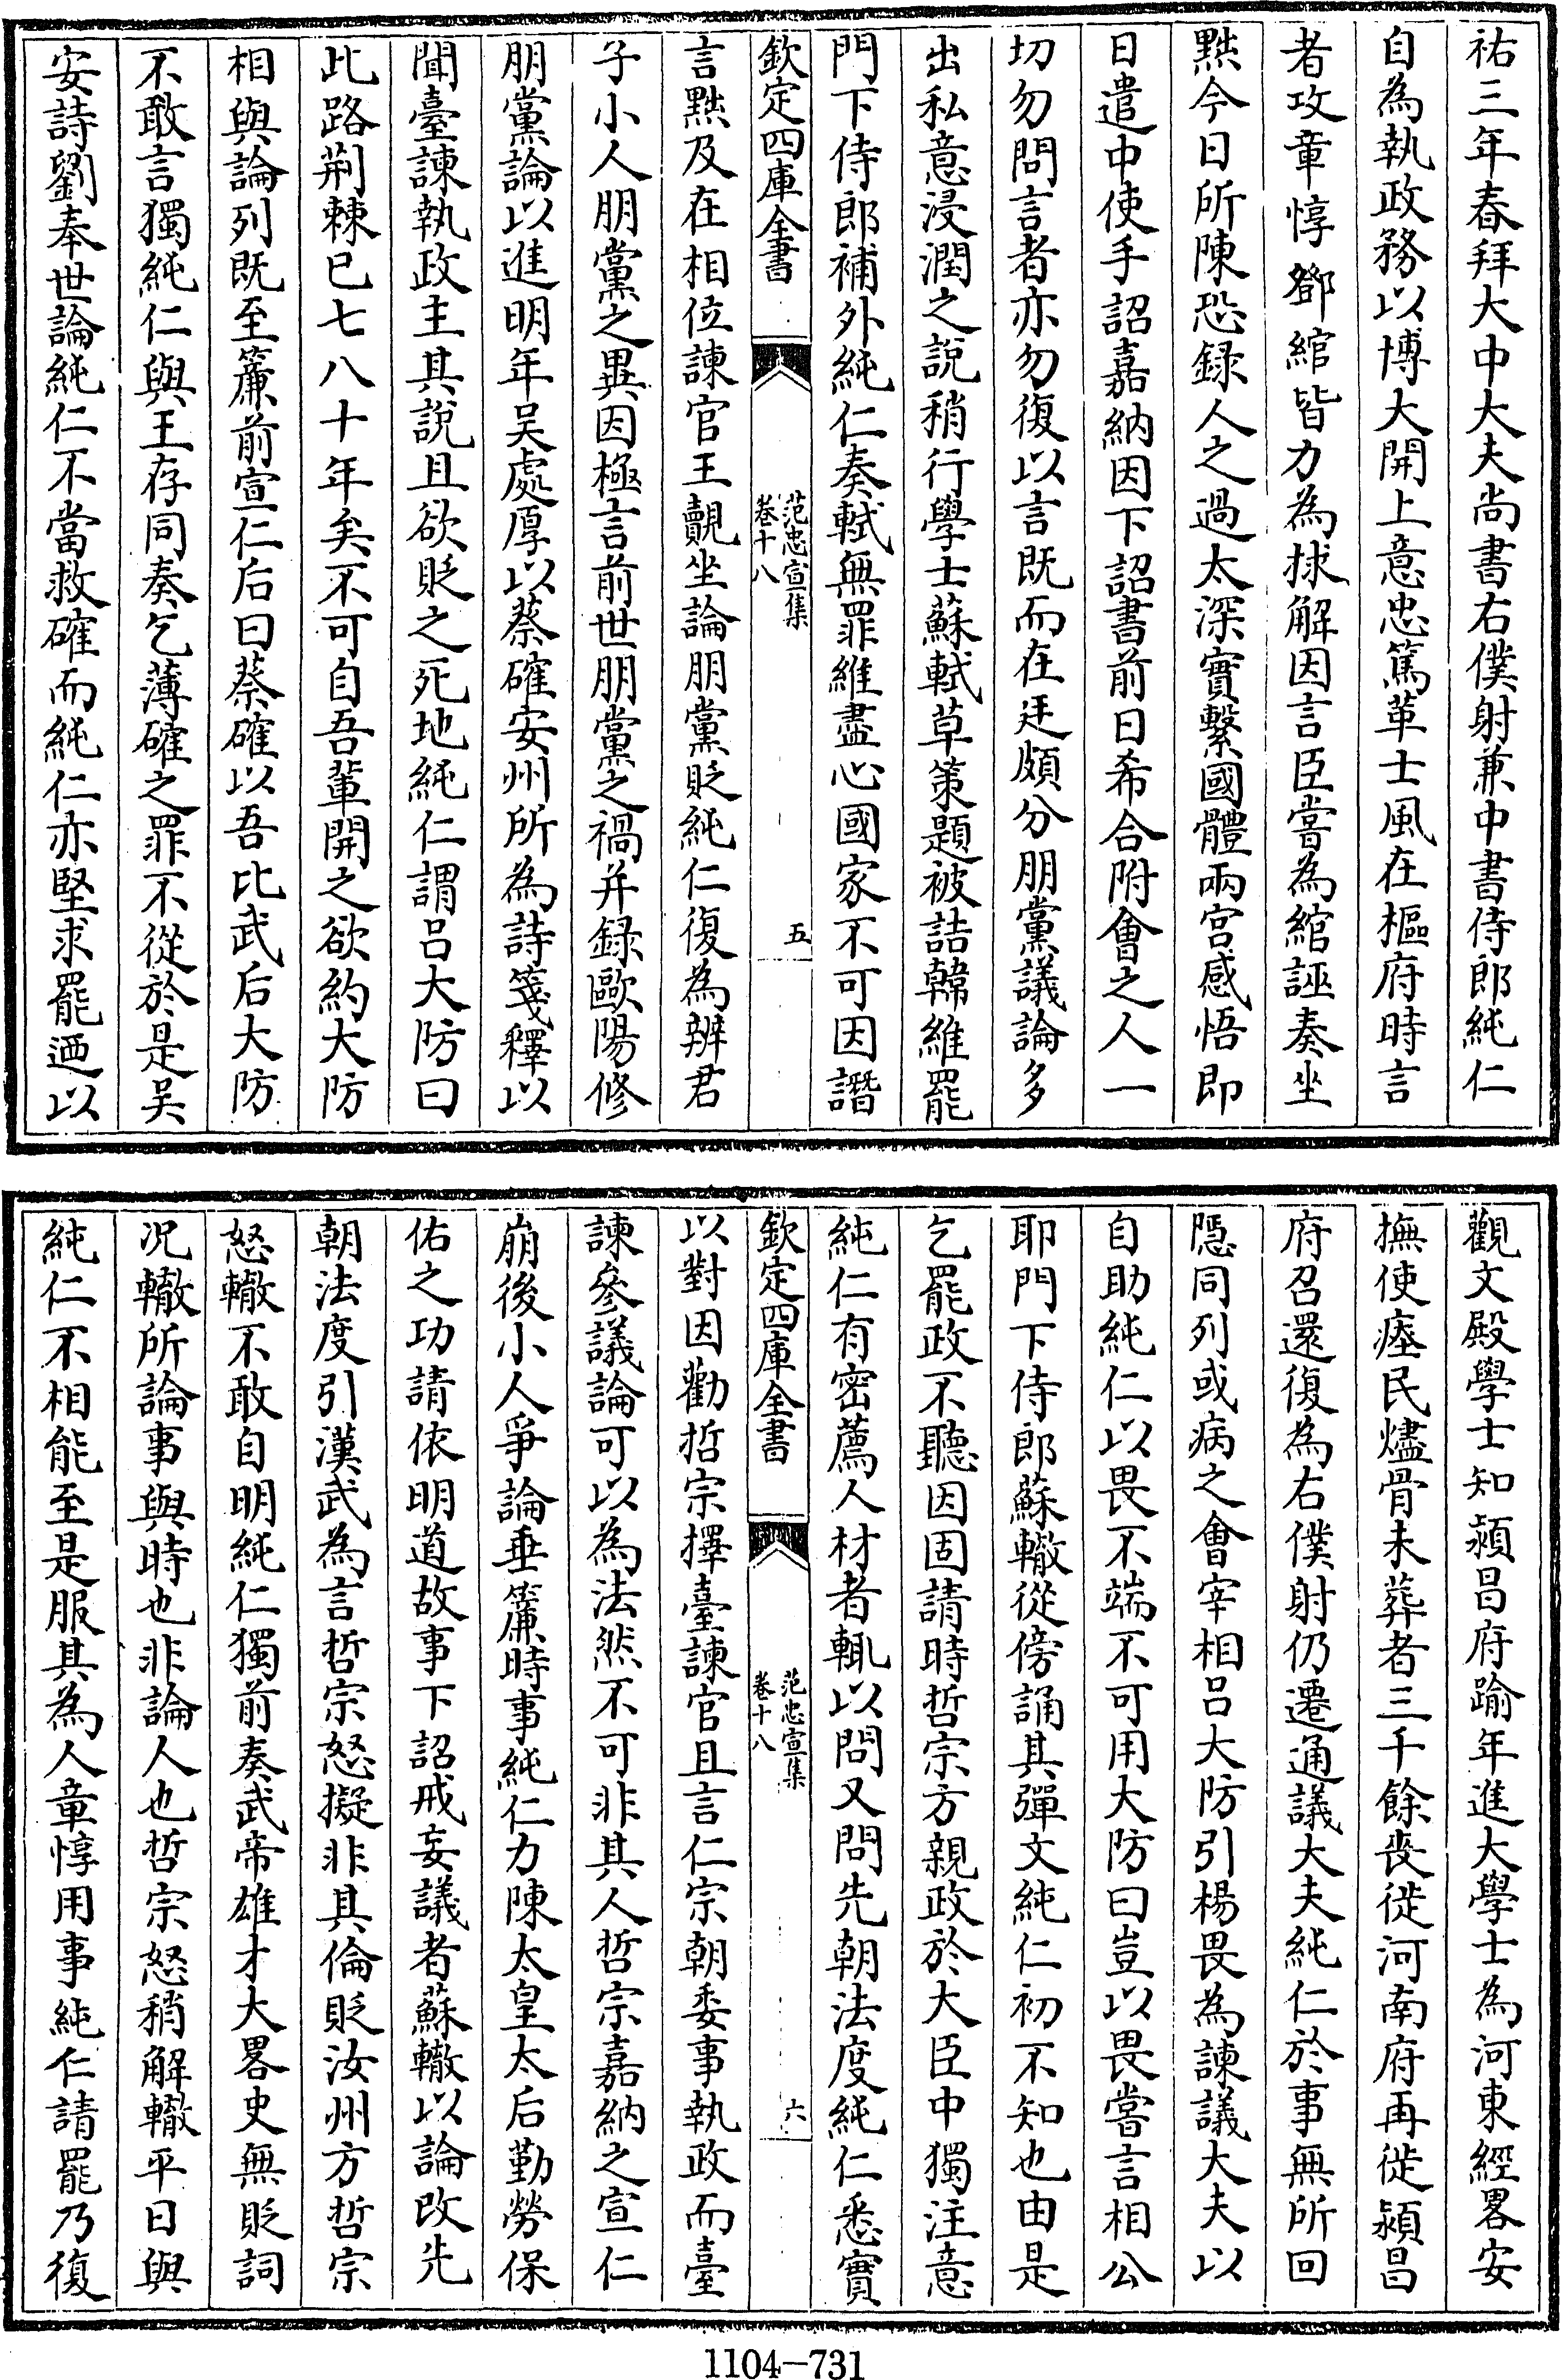 祐三年春拜大中大夫尚書右僕射兼中書侍郎純仁
自為執政務以博大開上意忠篤革士風在樞府時言
者攻章惇鄧綰皆力為捄解因言臣嘗為綰誣奏坐
黜今日所陳恐録人之過太深實繫國體兩宮感悟即
日遣中使手詔嘉納因下詔書前日希合附會之人一
切勿問言者亦勿復以言既而在廷頗分朋黨議論多
出私意浸潤之說稍行學士蘇軾草策題被詰韓維罷
門下侍郎補外純仁奏軾無罪維盡心國家不可因譖
欽定四庫全書
范忠宣集
卷十八
五
言黜及在相位諫官王覿坐論朋黨貶純仁復為辨君
子小人朋黨之異因極言前世朋黨之禍并録歐陽修
朋黨論以進明年吴處厚以蔡確安州所為詩箋釋以
聞臺諫執政主其說且欲貶之死地純仁謂吕大防曰
此路荆棘已七八十年矣不可自吾輩開之欲約大防
相與論列既至簾前宣仁后曰蔡確以吾比武后大防
不敢言獨純仁與王存同奏乞薄確之罪不從於是吴
安詩劉奉世論純仁不當救確而純仁亦堅求罷迺以
觀文殿學士知潁昌府踰年進大學士為河東經畧安
撫使瘞民燼骨未葬者三千餘喪徙河南府再徙潁昌
府召還復為右僕射仍遷通議大夫純仁於事無所回
隱同列或病之會宰相吕大防引楊畏為諫議大夫以
自助純仁以畏不端不可用大防曰豈以畏嘗言相公
耶門下侍郎蘇轍從傍誦其彈文純仁初不知也由是
乞罷政不聽因固請時哲宗方親政於大臣中獨注意
純仁有密薦人材者輒以問又問先朝法度純仁悉實
欽定四庫全書
范忠宣集
卷十八
六
以對因勸哲宗擇臺諫官且言仁宗朝委事執政而臺
諫參議論可以為法然不可非其人哲宗嘉納之宣仁
崩後小人爭論垂簾時事純仁力陳太皇太后勤勞保
佑之功請依明道故事下詔戒妄議者蘇轍以論改先
朝法度引漢武為言哲宗怒擬非其倫貶汝州方哲宗
怒轍不敢自明純仁獨前奏武帝雄才大畧史無貶詞
况轍所論事與時也非論人也哲宗怒稍解轍平日與
純仁不相能至是服其為人章惇用事純仁請罷乃復
1104-731